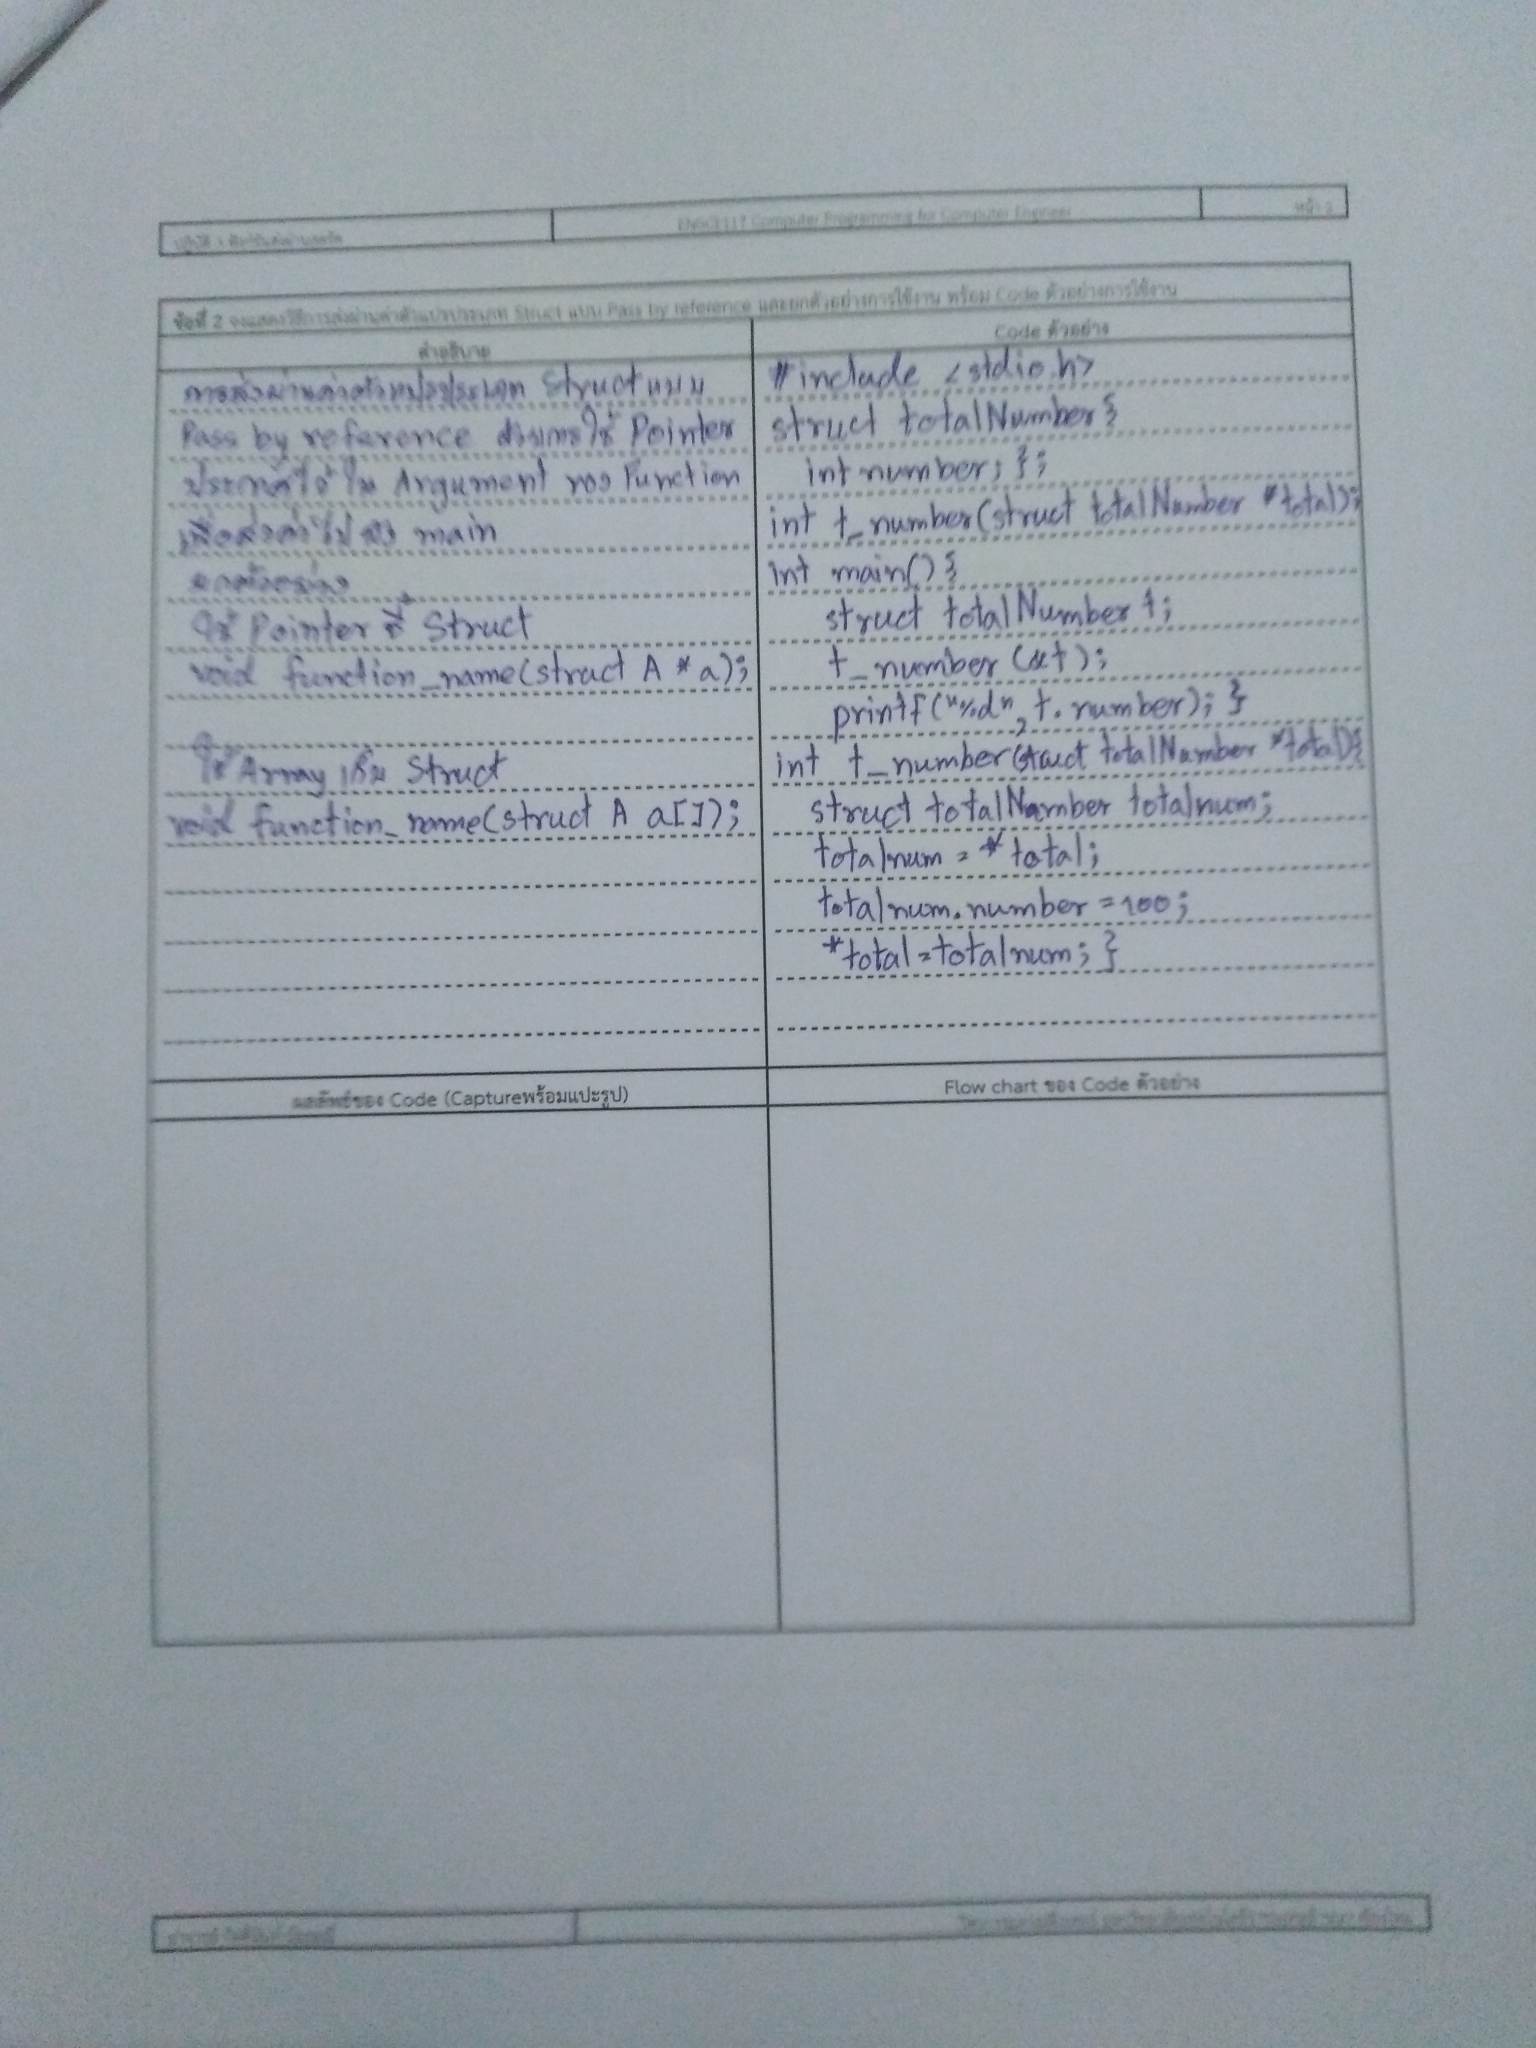 ENGCE117 Computer Programming for Computer Engineer
หน้า 2
ข้อที่ 2 จงแสดงวิธีการส่งผ่านค่าตัวแปรประเภท Struct แบบ Pass by reference และยกตัวอย่างการใช้งาน พร้อม Code ตัวอย่างการใช้งาน
คำอธิบาย
การส่งผ่านค่าตัวแปรประเภท Struct แบบ
Pass by reference ด้วยการใช้ Pointer
ประกาศไว้ใน Argument ของ Function
เพื่อส่งค่าไปยัง main
ยกตัวอย่าง
ใช้ Pointer ชี้ Struct
void function_name(struct A *a);
ใช้ Array เก็บ Struct
void function_name(struct A a[]);
Code ตัวอย่าง
#include <stdio.h>
struct totalNumber{
int number; };
int t_number(struct totalNumber *total);
int main(){
struct totalNumber t;
t_number(&t);
printf("%d", t.number); }
int t_number(struct totalNumber *total){
struct totalNumber totalnum;
totalnum = *total;
totalnum.number = 100;
*total = totalnum; }
ผลลัพธ์ของ Code (Captureพร้อมแปะรูป)
Flow chart ของ Code ตัวอย่าง